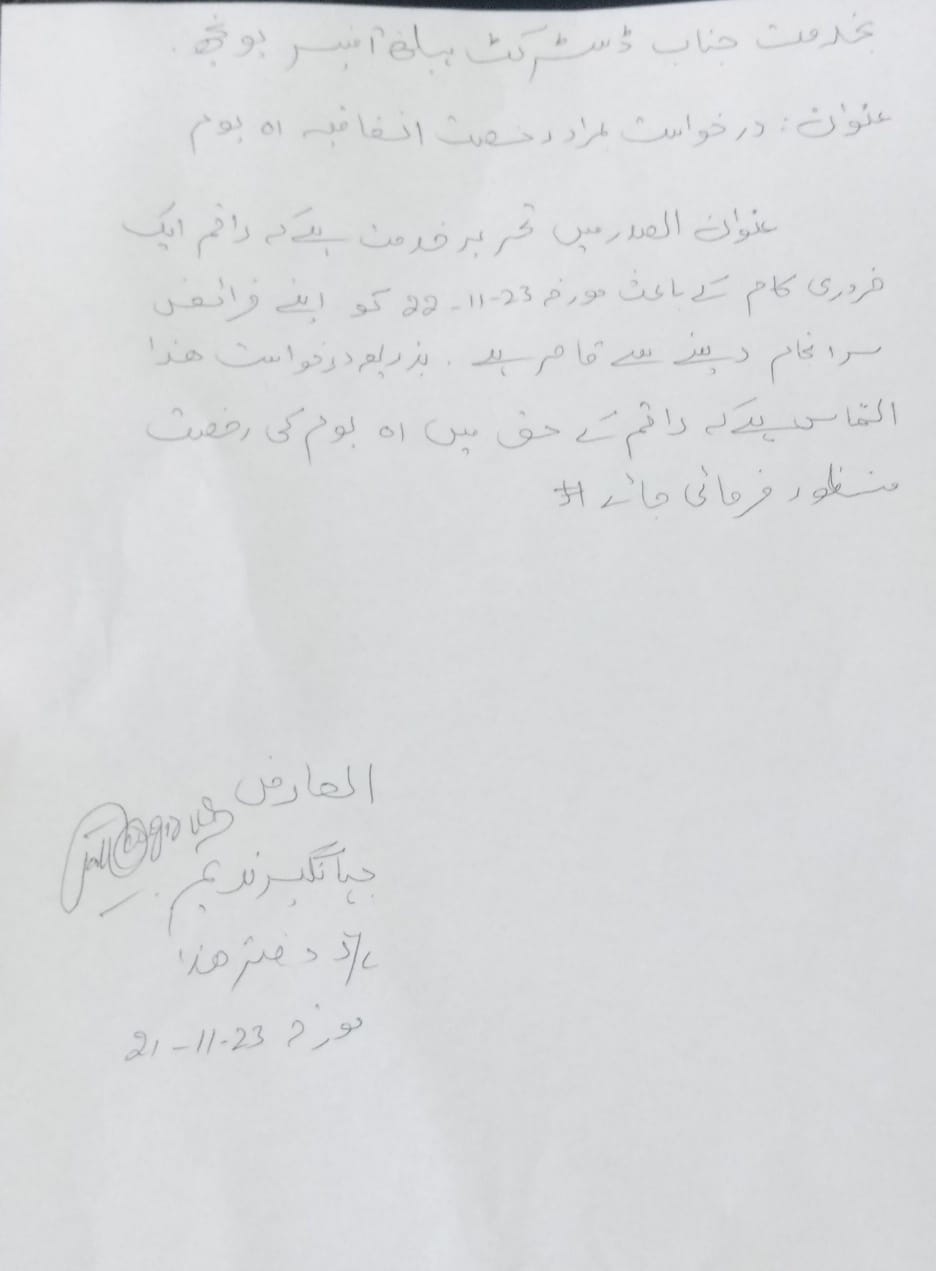 بخدمت جناب ڈسٹرکٹ ہیلتھ آفیسر پونچھ۔
عنوان: درخواست بمراد رخصت اتفاقیہ 01 یوم
عنوان الصدر میں تحریر خدمت ہیکہ راقم ایک
ضروری کام کے باعث مورخہ 22-11-23 کو اپنے فرائض
سرانجام دینے سے قاصر ہے۔ بذریعہ درخواست ھذا
التماس ہیکہ راقم کے حق میں 01 یوم کی رخصت
منظور فرمائی جائے #
العارض
جہانگیر ندیم
دفتر ھذا
مورخہ 21-11-23